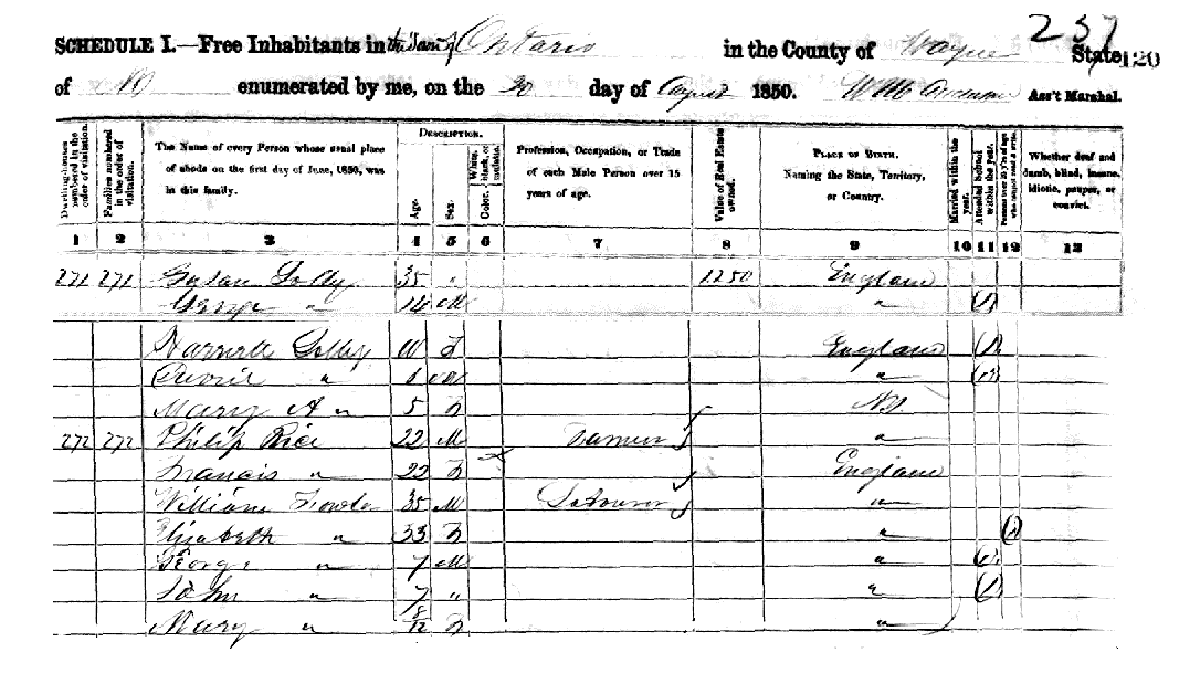 237
SCHEDULE I.—Free Inhabitants in the Town of Ontario in the County of Wayne State 120
of NY enumerated by me, on the 20 day of August 1850. Ass't Marshal.
Dwelling-houses numbered in the order of visitation.
Families numbered in the order of visitation.
The Name of every Person whose usual place of abode on the first day of June, 1850, was in this family.
DESCRIPTION.
Age.
Sex.
Color, White, black, or mulatto.
Profession, Occupation, or Trade of each Male Person over 15 years of age.
Value of Real Estate owned.
PLACE OF BIRTH. Naming the State, Territory, or Country.
Married within the year.
Attended School within the year.
Persons over 20 y'rs of age who cannot read & write.
Whether deaf and dumb, blind, insane, idiotic, pauper, or convict.
1 2 3 4 5 6 7 8 9 10 11 12 13
271 271 Susan 35 " 1250 England
George " 14 M " 1
Golley F England 1
" M " 1
Mary A " 5 F NY
272 272 Philip Rice 22 M Farmer "
Francis " 22 F England
William Fowler 35 M Labourer "
Elizabeth " 33 F " 1
George " 7 M " 1
John " 7 " " 1
Mary " 8/12 F "